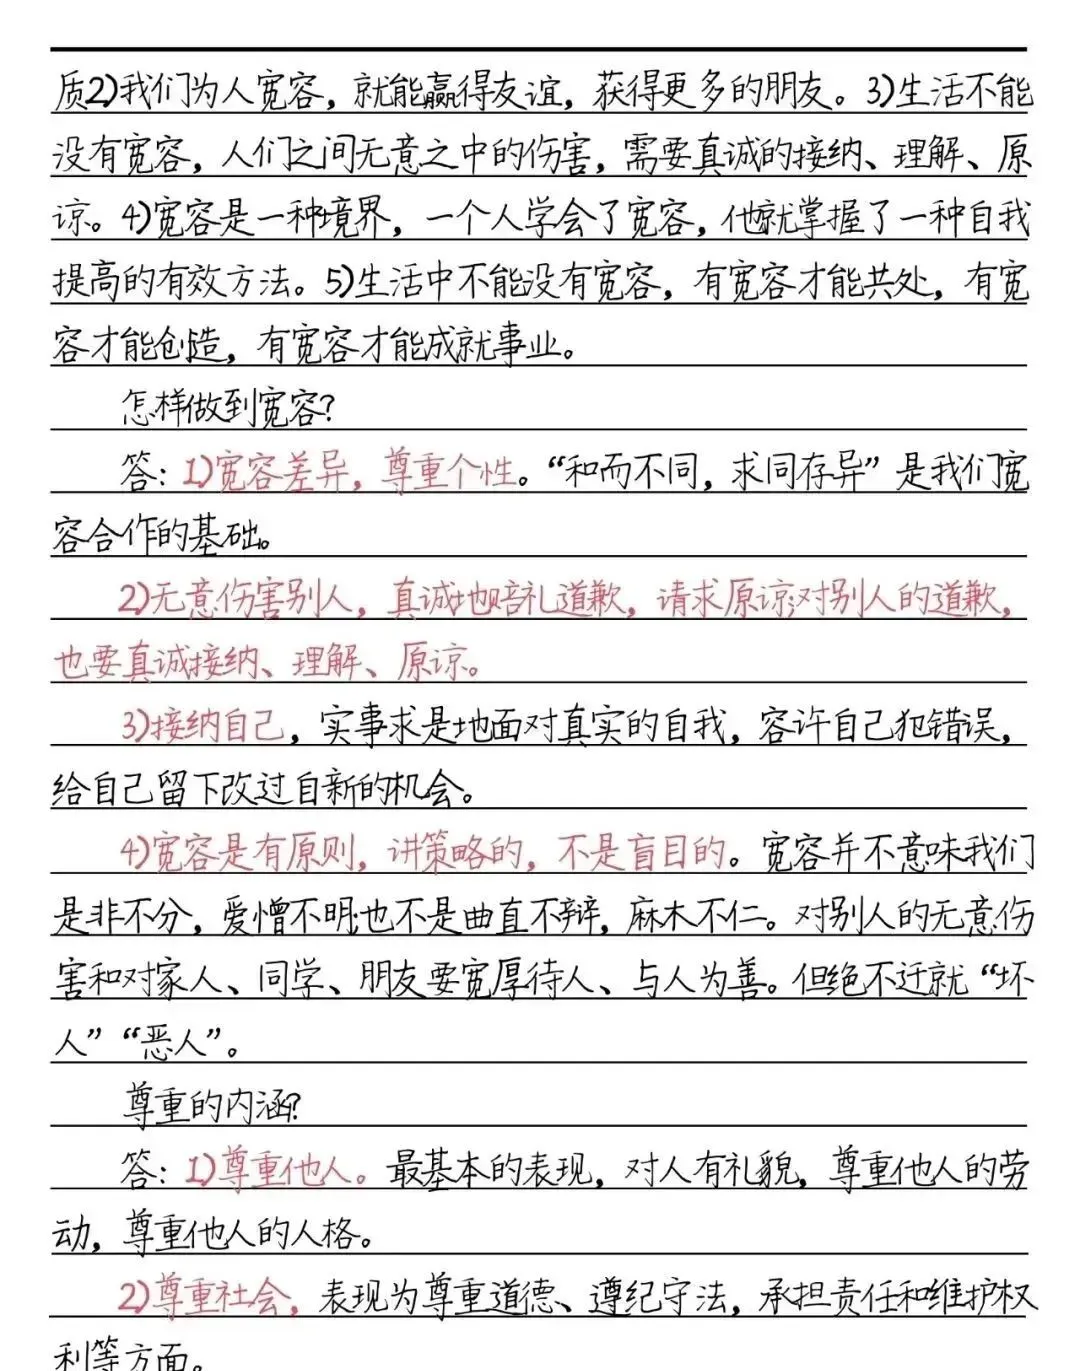 质2)我们为人宽容，就能赢得友谊，获得更多的朋友。3)生活不能
没有宽容，人们之间无意之中的伤害，需要真诚的接纳、理解、原
谅。4)宽容是一种境界，一个人学会了宽容，他就掌握了一种自我
提高的有效方法。5)生活中不能没有宽容，有宽容才能共处，有宽
容才能创造，有宽容才能成就事业。
怎样做到宽容？
答：1)宽容差异，尊重个性。“和而不同，求同存异”是我们宽
容合作的基础。
2)无意伤害别人，真诚地赔礼道歉，请求原谅;对别人的道歉，
也要真诚接纳、理解、原谅。
3)接纳自己，实事求是地面对真实的自我，容许自己犯错误，
给自己留下改过自新的机会。
4)宽容是有原则，讲策略的，不是盲目的。宽容并不意味我们
是非不分，爱憎不明;也不是曲直不辩，麻木不仁。对别人的无意伤
害和对家人、同学、朋友要宽厚待人、与人为善。但绝不迁就“坏
人”“恶人”。
尊重的内涵？
答：1)尊重他人。最基本的表现，对人有礼貌，尊重他人的劳
动，尊重他人的人格。
2)尊重社会，表现为尊重道德、遵纪守法，承担责任和维护权
利等方面。